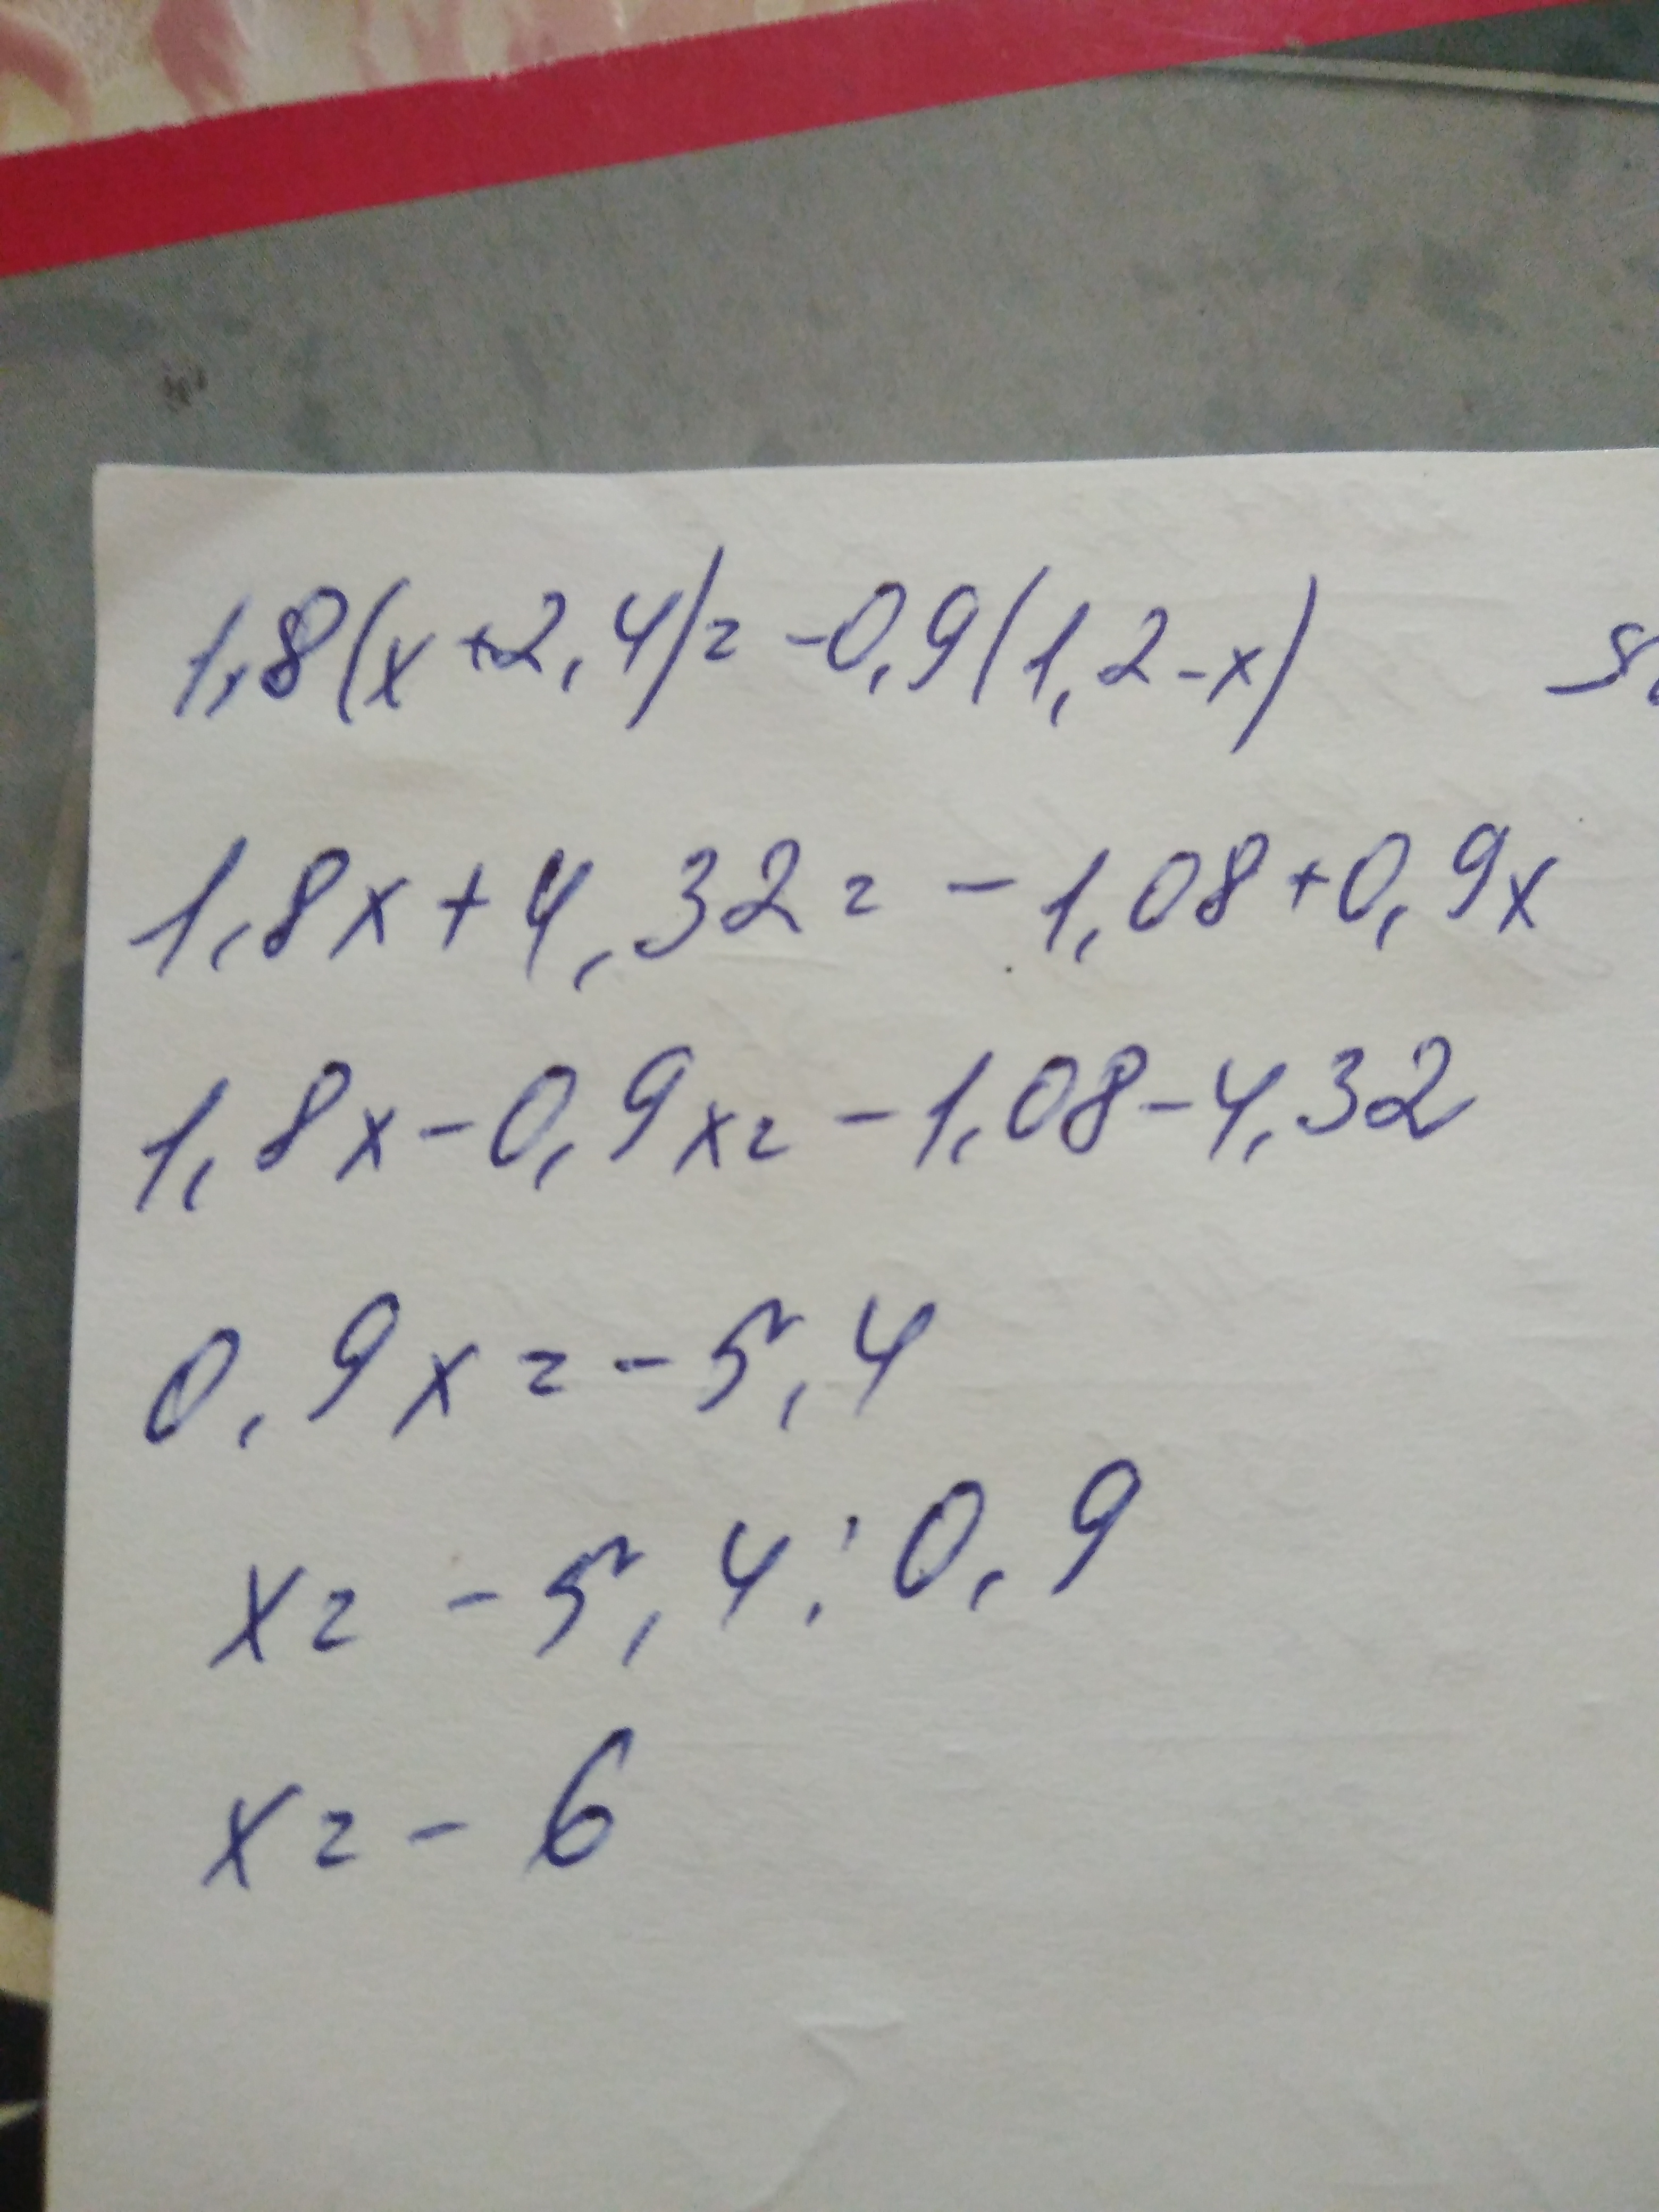 1,8(x+2,4)=-0,9(1,2-x)
1,8x+4,32=-1,08+0,9x
1,8x-0,9x=-1,08-4,32
0,9x=-5,4
x=-5,4:0,9
x=-6